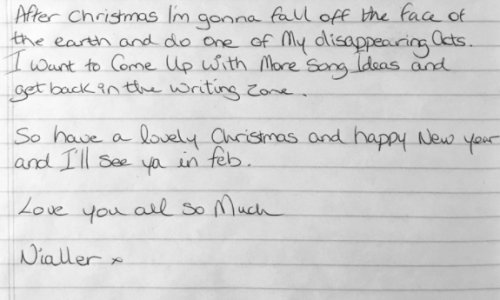 After Christmas I'm gonna fall off the face of
the earth and do one of My disappearing Acts.
I want to Come Up with More Song Ideas and
get back in the writing Zone.
So have a lovely Christmas and happy New year
and I'll see ya in feb.
Love you all so Much
Nialler x